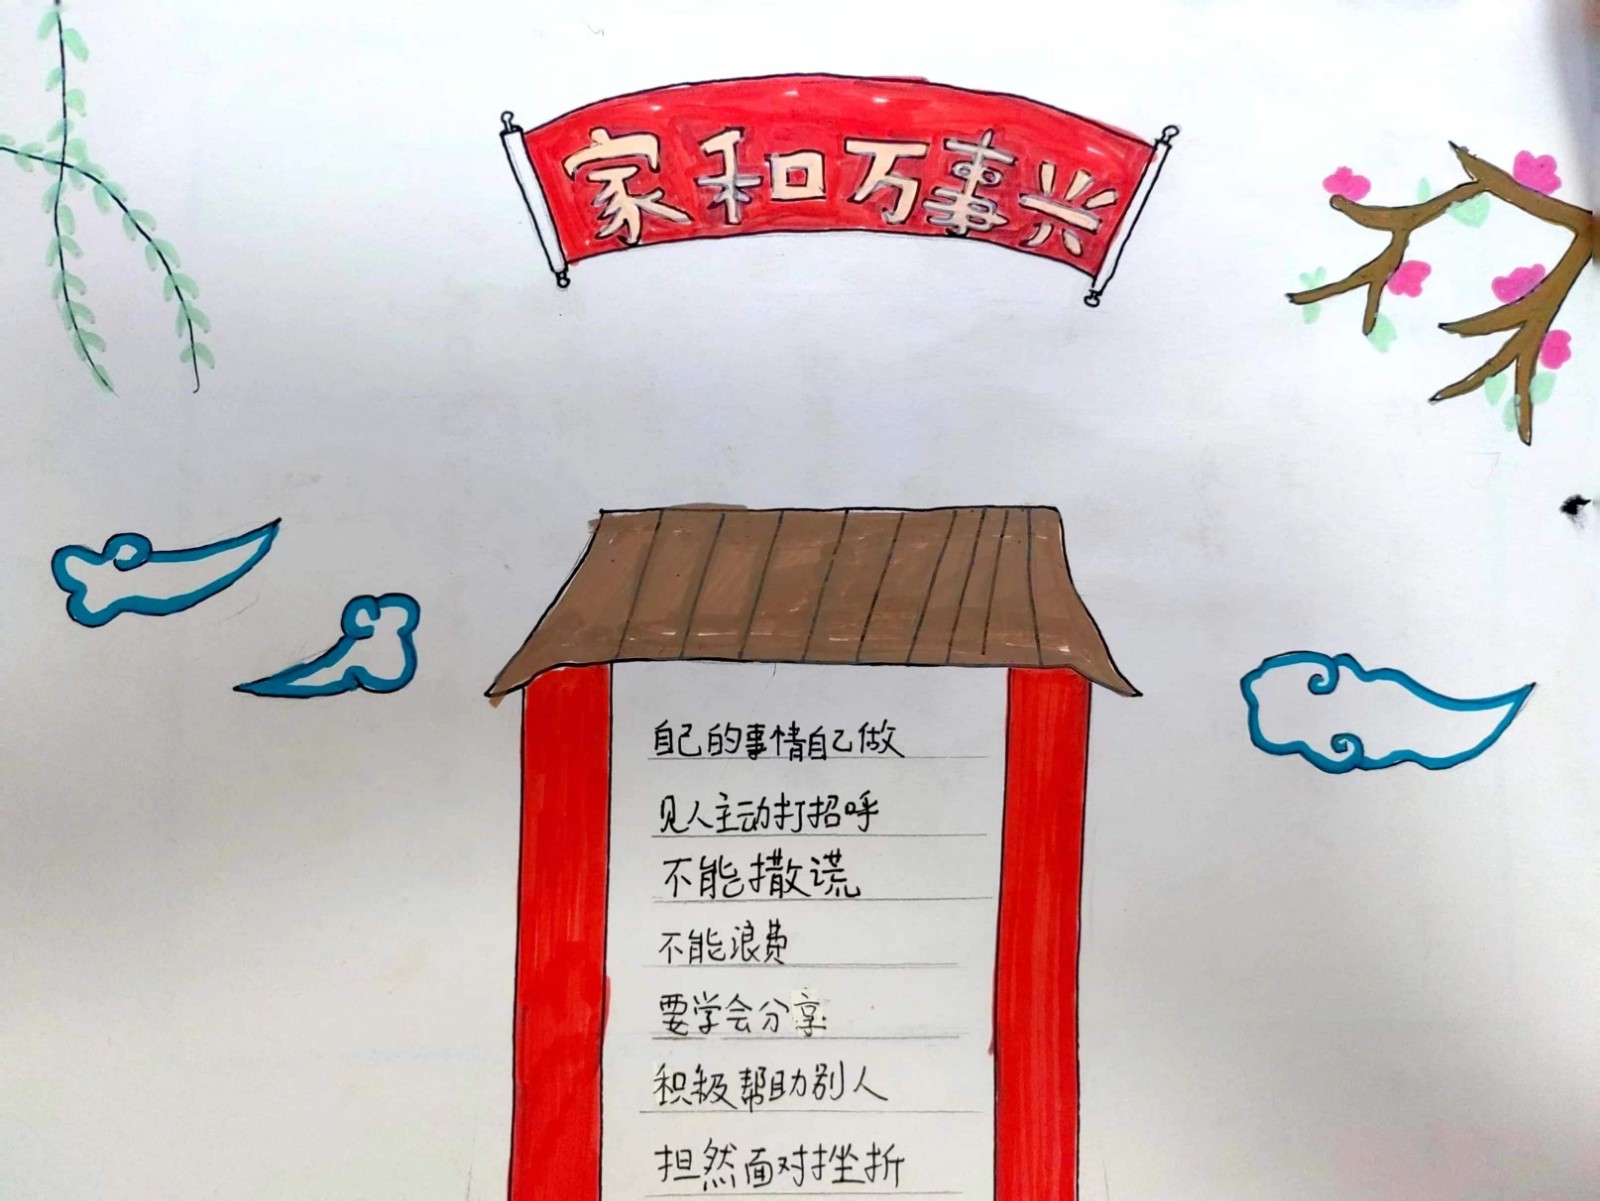 家和万事兴
自己的事情自己做
见人主动打招呼
不能撒谎
不能浪费
要学会分享
积极帮助别人
担然面对挫折